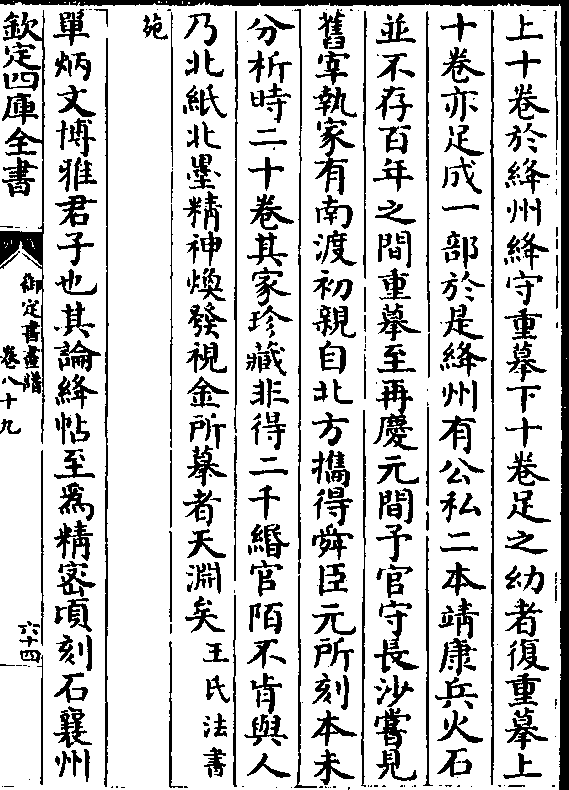 上十卷於絳州絳守重摹下十卷足之幼者復重摹上
十卷亦足成一部於是絳州有公私二本靖康兵火石
並不存百年之間重摹至再慶元間予官守長沙嘗見
舊宰執家有南渡初親自北方攜得舜臣元所刻本未
分析時二十卷其家珍藏非得二千緡官陌不肯與人
乃北紙北墨精神煥發視金所摹者天淵矣王氏法書
苑
單炳文博雅君子也其論絳帖至爲精密頃刻石襄州
欽定四庫全書
御定書畫譜
卷八十九
六十四